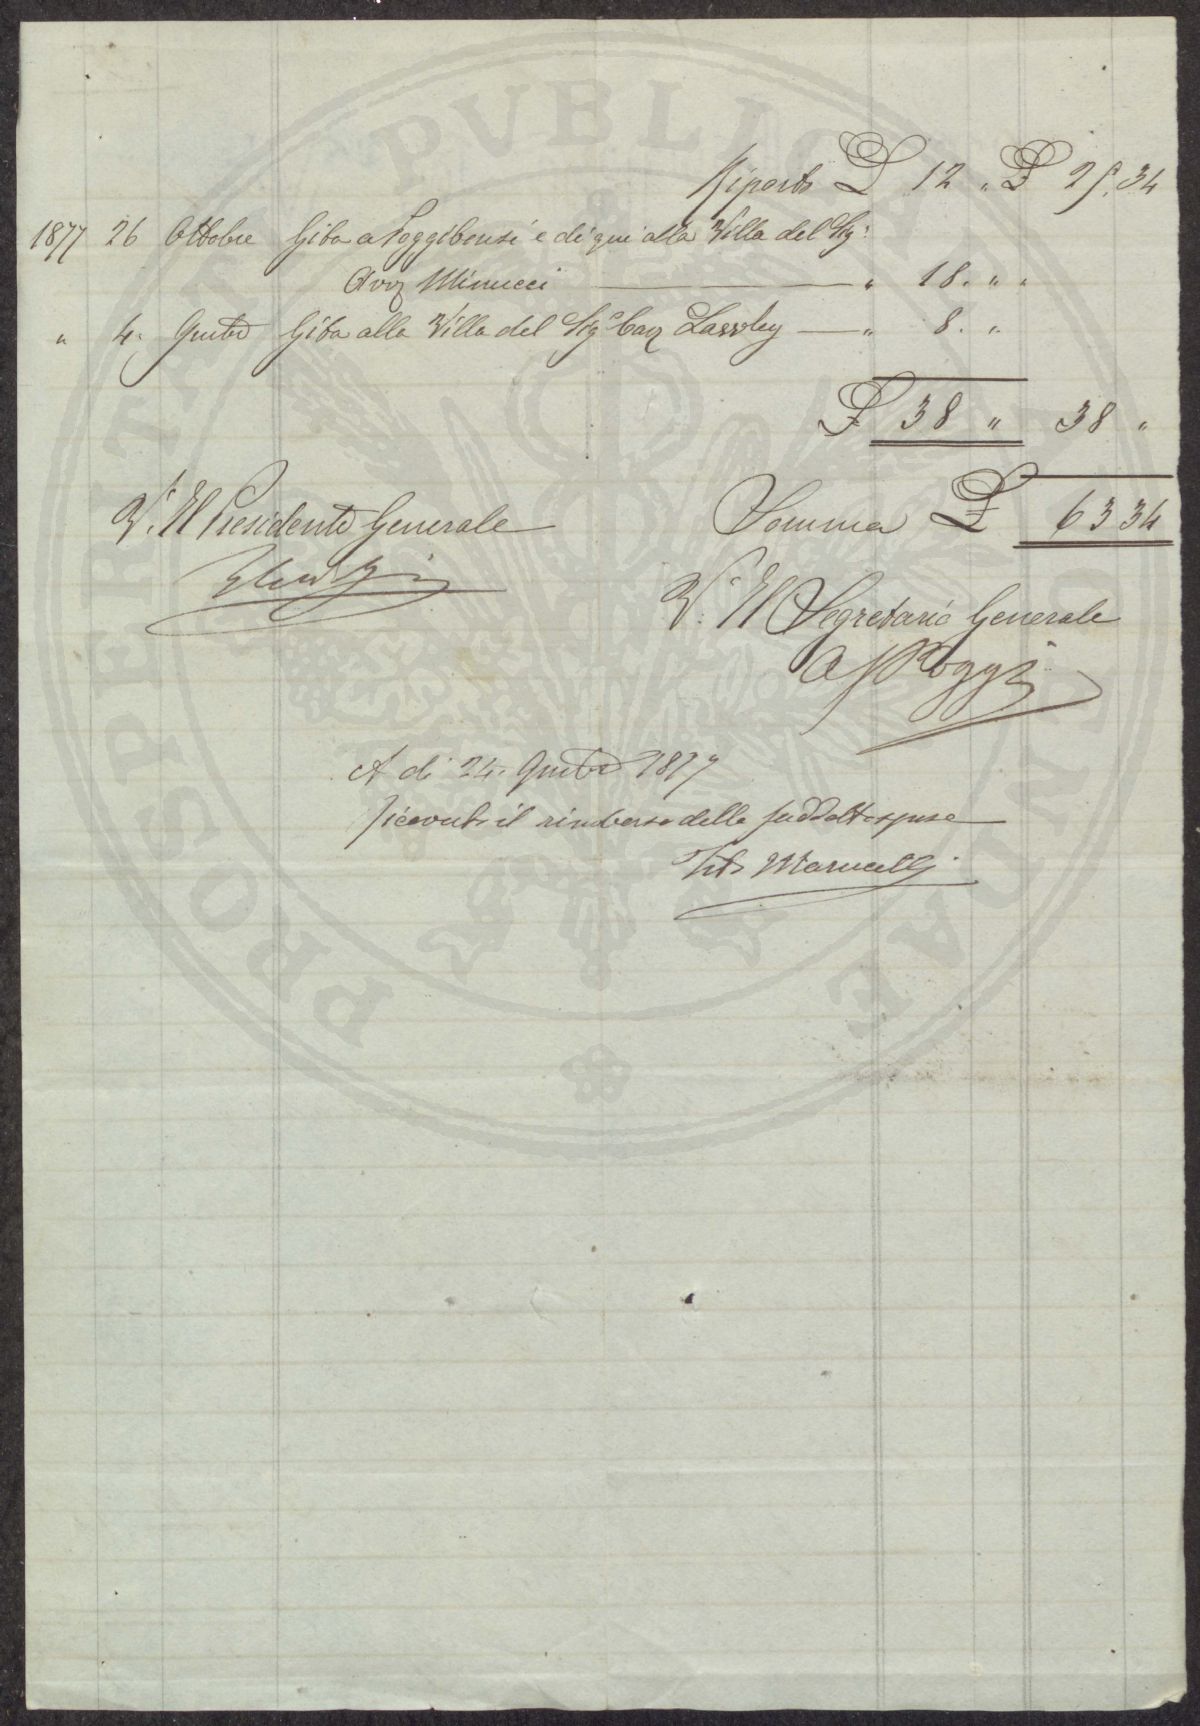 Riporto £ 12 " £ 25.34
1877 26 Ottobre Gita a Poggibonsi e di qui alla Villa del Sig.
Avv. Minucci " 18. " "
" 4. 9mbre Gita alla Villa del Sig. Cav. " 8. "
£ 38 " 38 "
V. Il Presidente Generale
Somma £ 63 34
V. Il Segretario Generale
Poggi
A di 24. 9mbre 1877
ricevuto il rimborso delle suddette spese
Tito Marucelli
PROSPERITATI PVBLICAE AVGENDAE